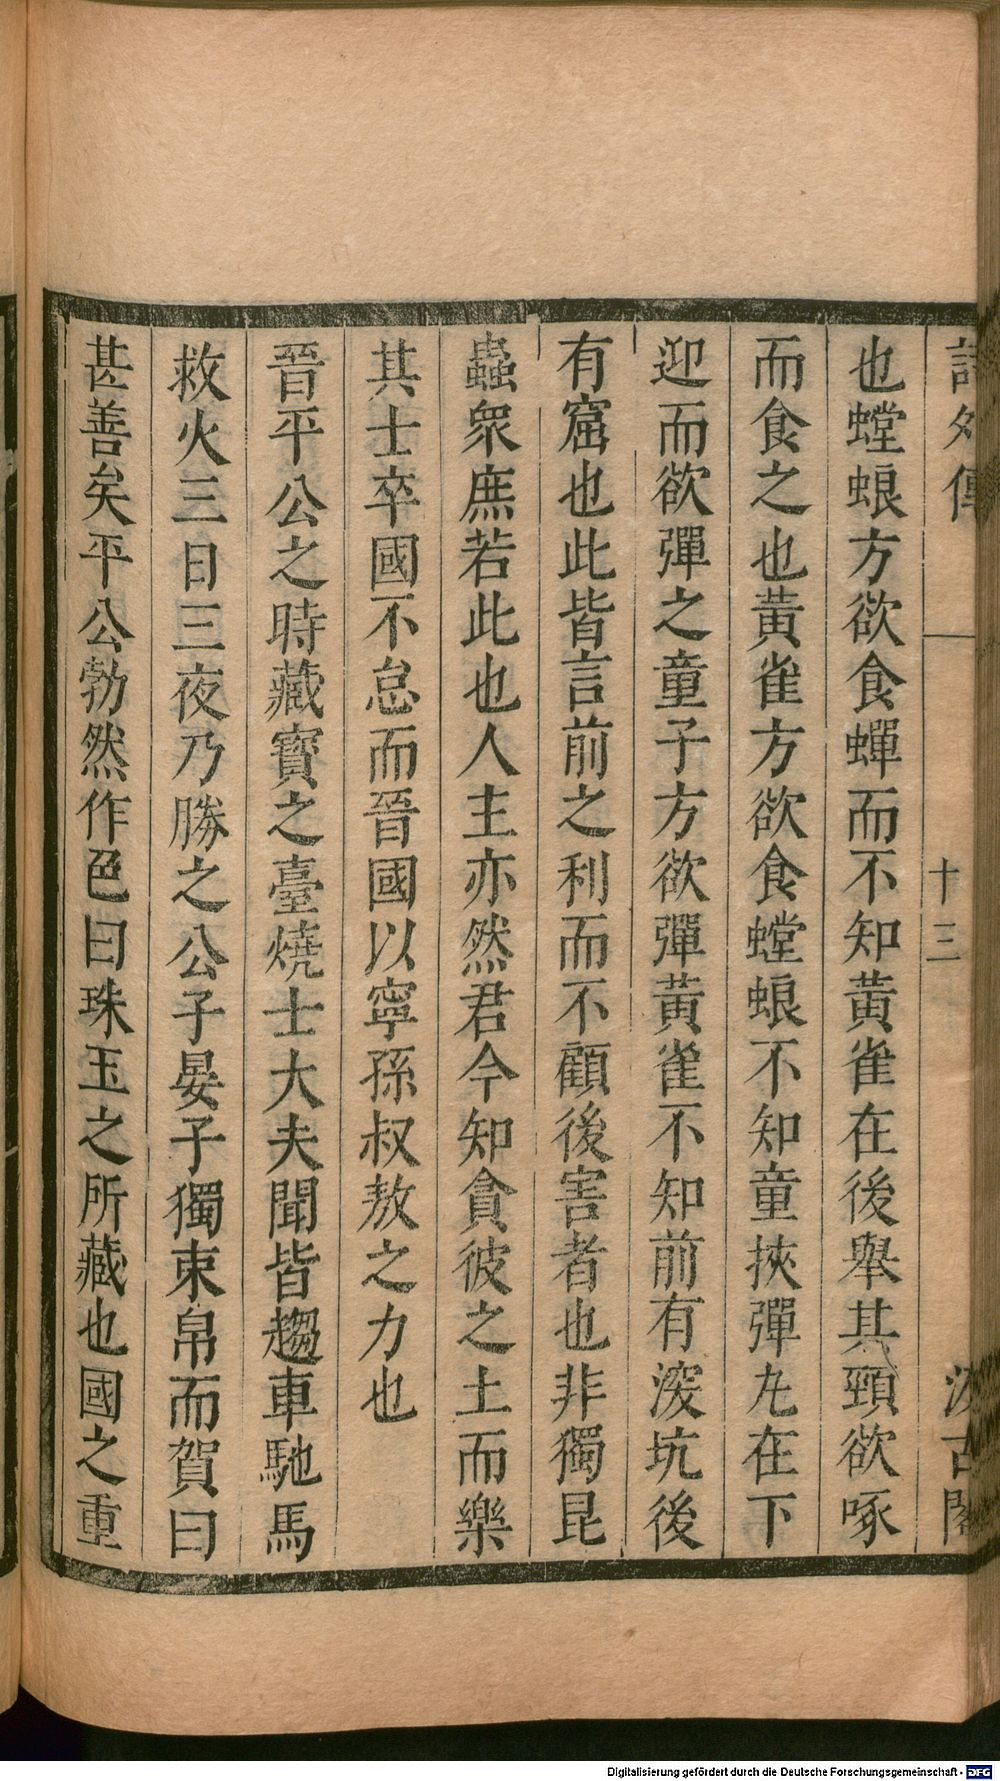 詩外傳 十三 汲古閣
也螳蜋方欲食蟬而不知黃雀在後舉其頸欲啄
而食之也黃雀方欲食螳蜋不知童挾彈丸在下
迎而欲彈之童子方欲彈黃雀不知前有深坑後
有窟也此皆言前之利而不顧後害者也非獨昆
蟲眾庶若此也人主亦然君今知貪彼之土而樂
其士卒國不怠而晉國以寧孫叔敖之力也
晉平公之時藏寶之臺燒士大夫聞皆趨車馳馬
救火三日三夜乃勝之公子晏子獨束帛而賀曰
甚善矣平公勃然作色曰珠玉之所藏也國之重
Digitalisierung gefördert durch die Deutsche Forschungsgemeinschaft - DFG